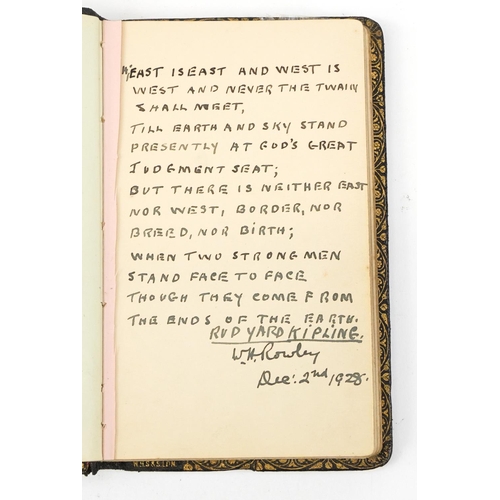 "EAST IS EAST AND WEST IS
WEST AND NEVER THE TWAIN
SHALL MEET,
TILL EARTH AND SKY STAND
PRESENTLY AT GOD'S GREAT
JUDGMENT SEAT;
BUT THERE IS NEITHER EAST
NOR WEST, BORDER, NOR
BREED, NOR BIRTH;
WHEN TWO STRONG MEN
STAND FACE TO FACE
THOUGH THEY COME FROM
THE ENDS OF THE EARTH.
RUDYARD KIPLING.
W.H. Rowley
Dec: 2nd 1928.